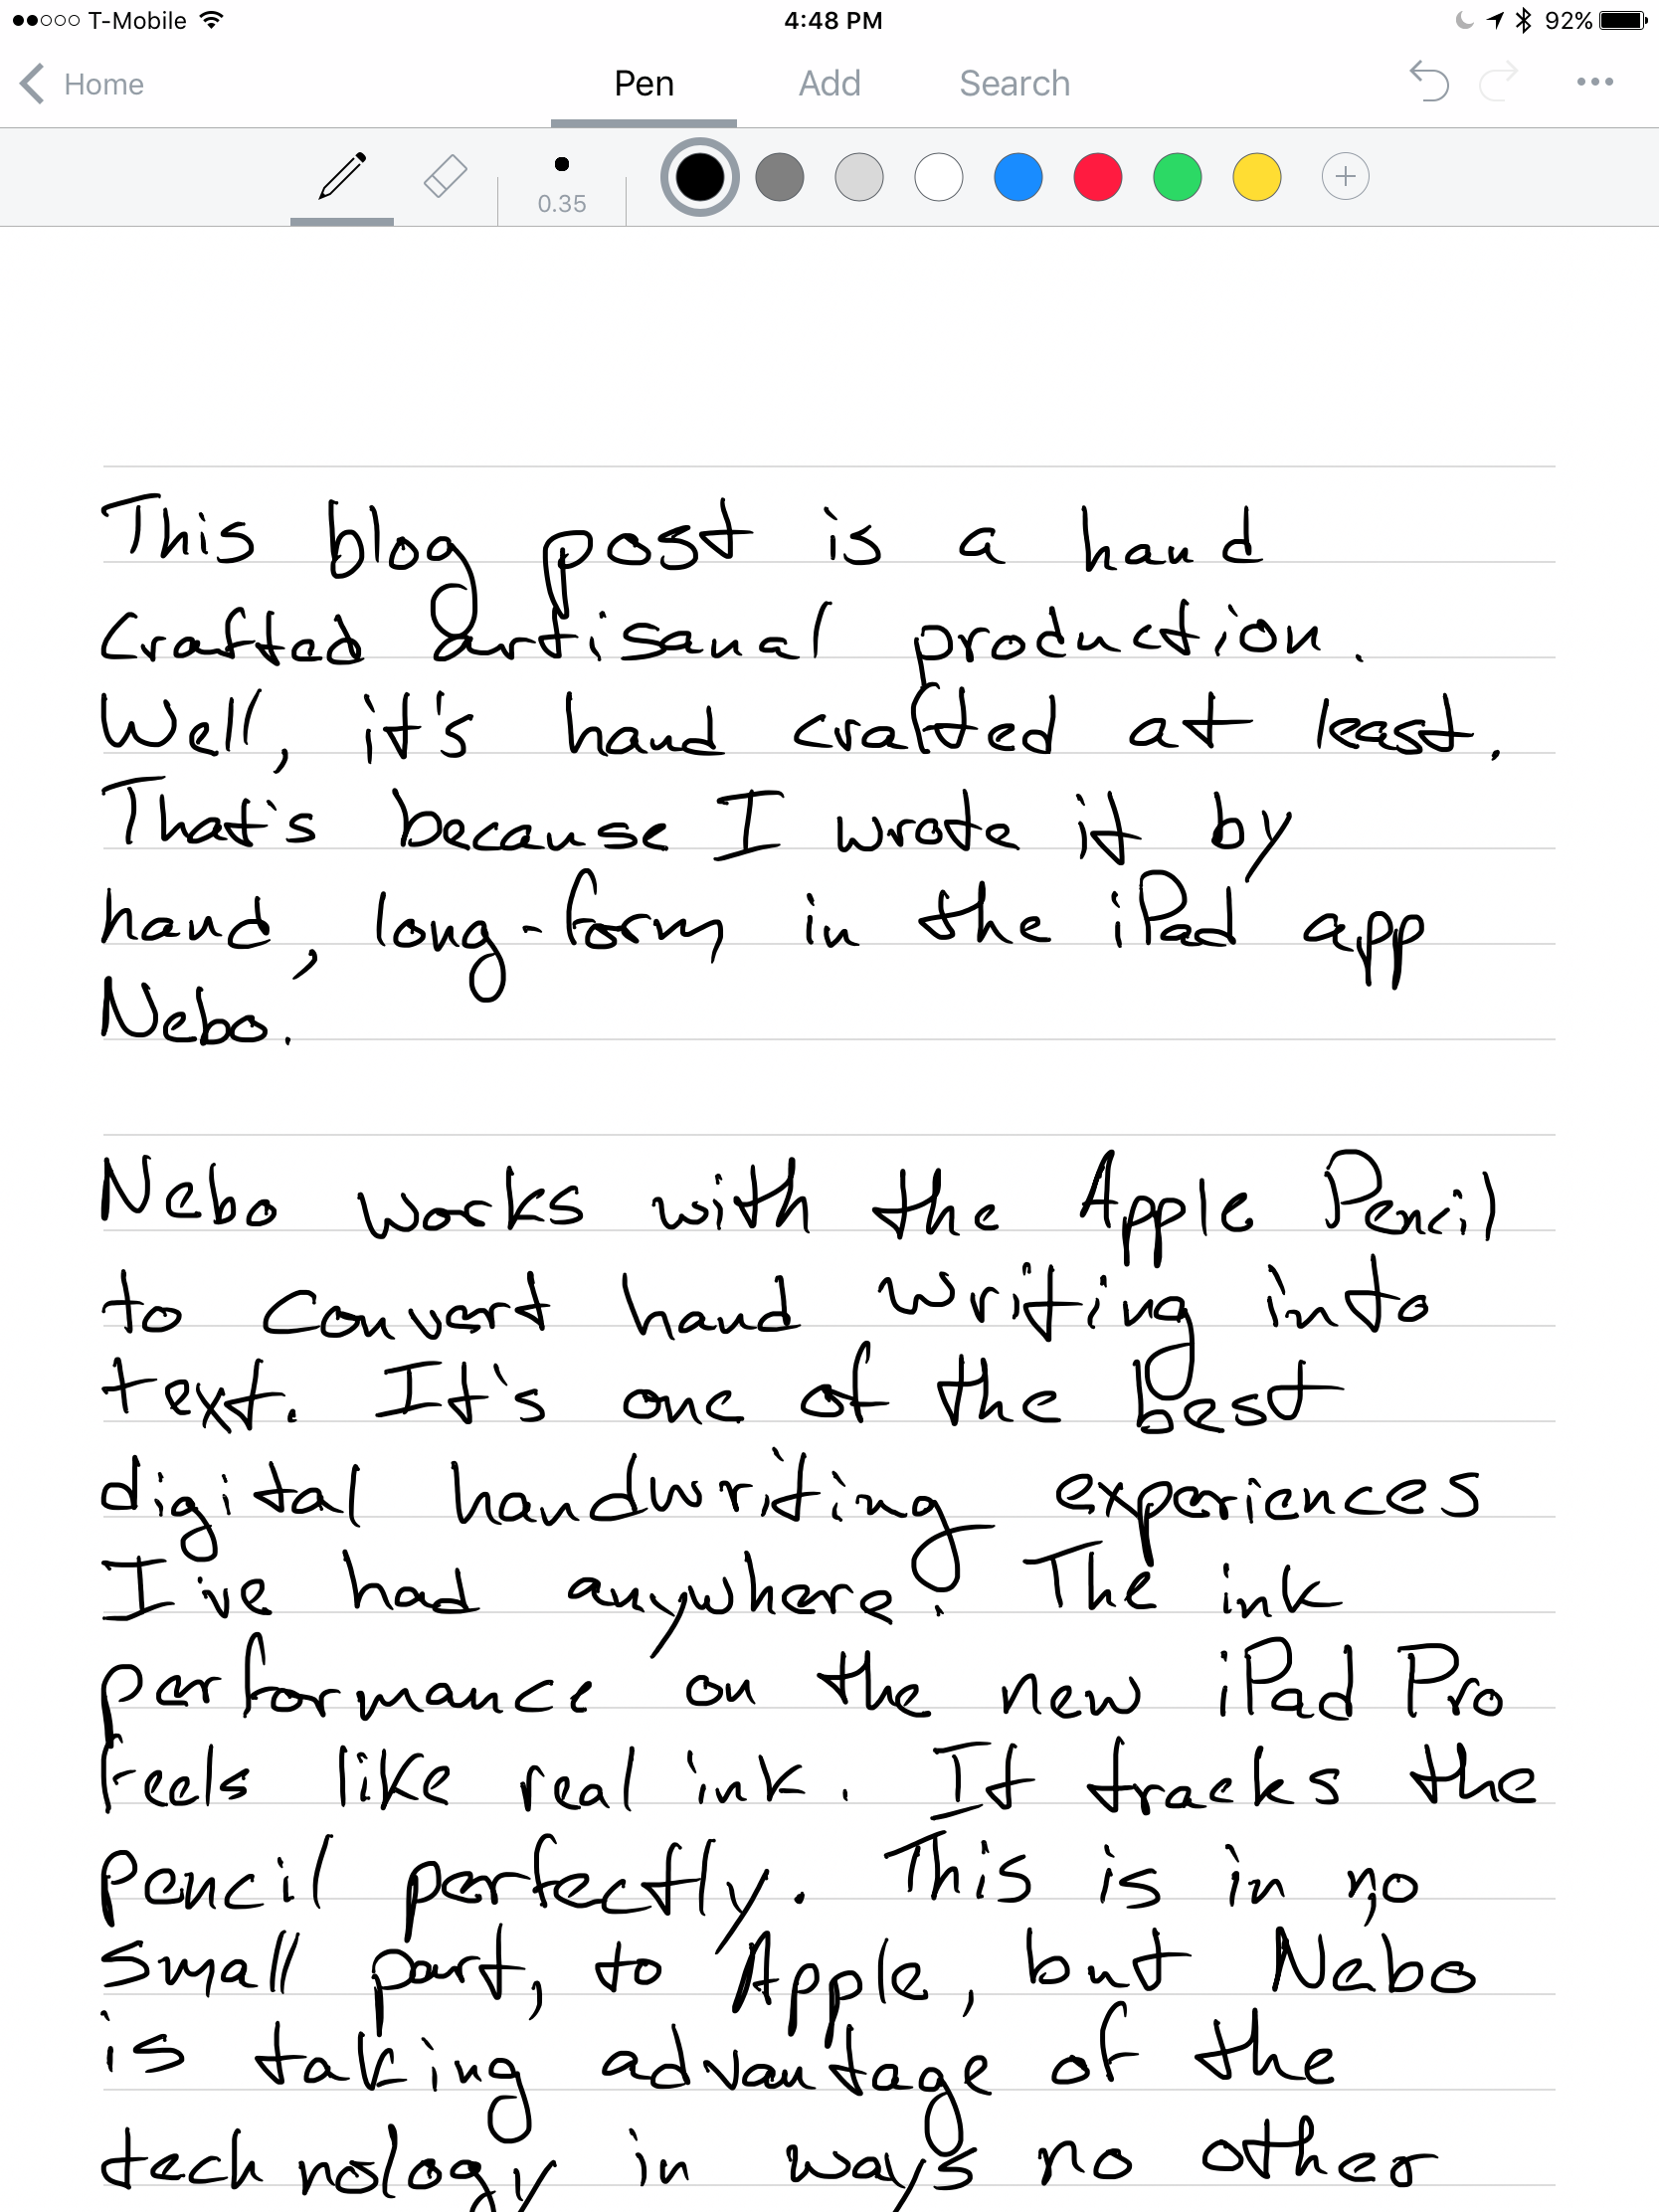 T-Mobile 4:48 PM 92%
Home Pen Add Search
0.35
This blog post is a hand
crafted artisanal production.
Well, it's hand crafted at least.
That's because I wrote it by
hand, long-form in the iPad app
Nebo.
Nebo works with the Apple Pencil
to convert hand writing into
text. It's one of the best
digital handwriting experiences
I've had anywhere. The ink
performance on the new iPad Pro
feels like real ink. It tracks the
pencil perfectly. This is in no
small part, to Apple, but Nebo
is taking advantage of the
technology in ways no other